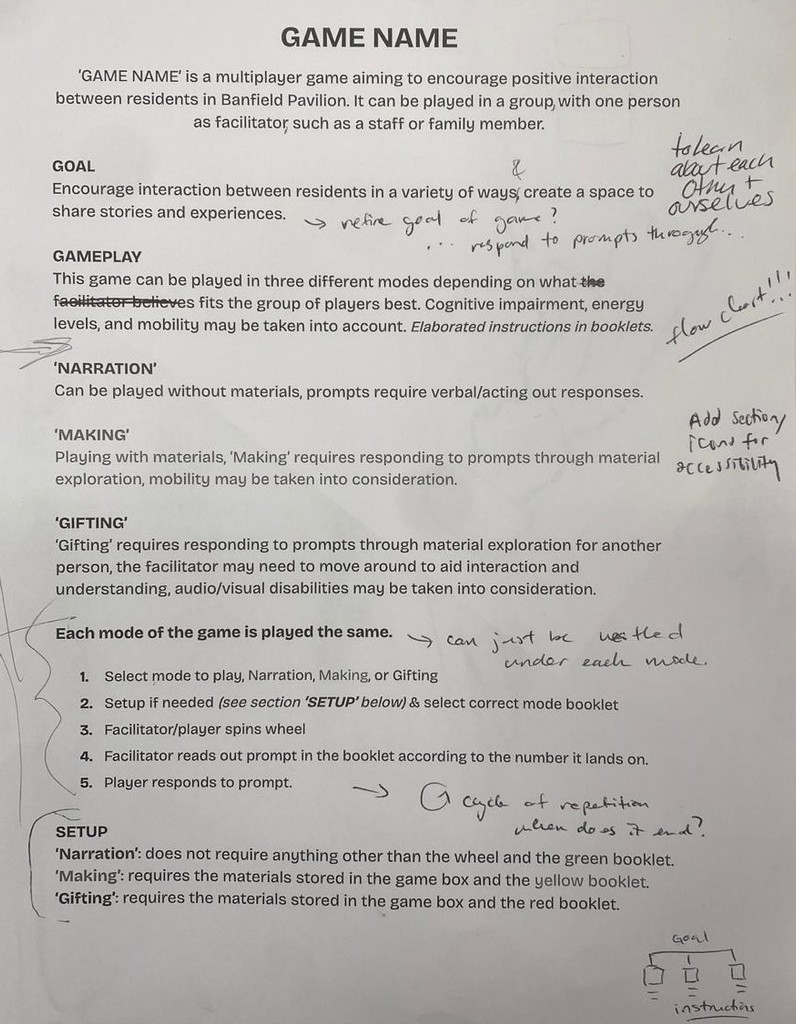 GAME NAME
'GAME NAME' is a multiplayer game aiming to encourage positive interaction
between residents in Banfield Pavilion. It can be played in a group, with one person
as facilitator, such as a staff or family member.
GOAL
&
Encourage interaction between residents in a variety of ways, create a space to
share stories and experiences.
to learn
about each
other +
ourselves
→ refine goal of game?
... respond to prompts through...
GAMEPLAY
This game can be played in three different modes depending on what the
facilitator believes fits the group of players best. Cognitive impairment, energy
levels, and mobility may be taken into account. Elaborated instructions in booklets.
flow chart!!!
'NARRATION'
Can be played without materials, prompts require verbal/acting out responses.
'MAKING'
Playing with materials, 'Making' requires responding to prompts through material
exploration, mobility may be taken into consideration.
Add section
icons for
accessibility
'GIFTING'
'Gifting' requires responding to prompts through material exploration for another
person, the facilitator may need to move around to aid interaction and
understanding, audio/visual disabilities may be taken into consideration.
Each mode of the game is played the same.
→ can just be nestled
under each mode.
1. Select mode to play, Narration, Making, or Gifting
2. Setup if needed (see section 'SETUP' below) & select correct mode booklet
3. Facilitator/player spins wheel
4. Facilitator reads out prompt in the booklet according to the number it lands on.
5. Player responds to prompt.
→ cycle of repetition
when does it end?
SETUP
'Narration': does not require anything other than the wheel and the green booklet.
'Making': requires the materials stored in the game box and the yellow booklet.
'Gifting': requires the materials stored in the game box and the red booklet.
Goal
instructions